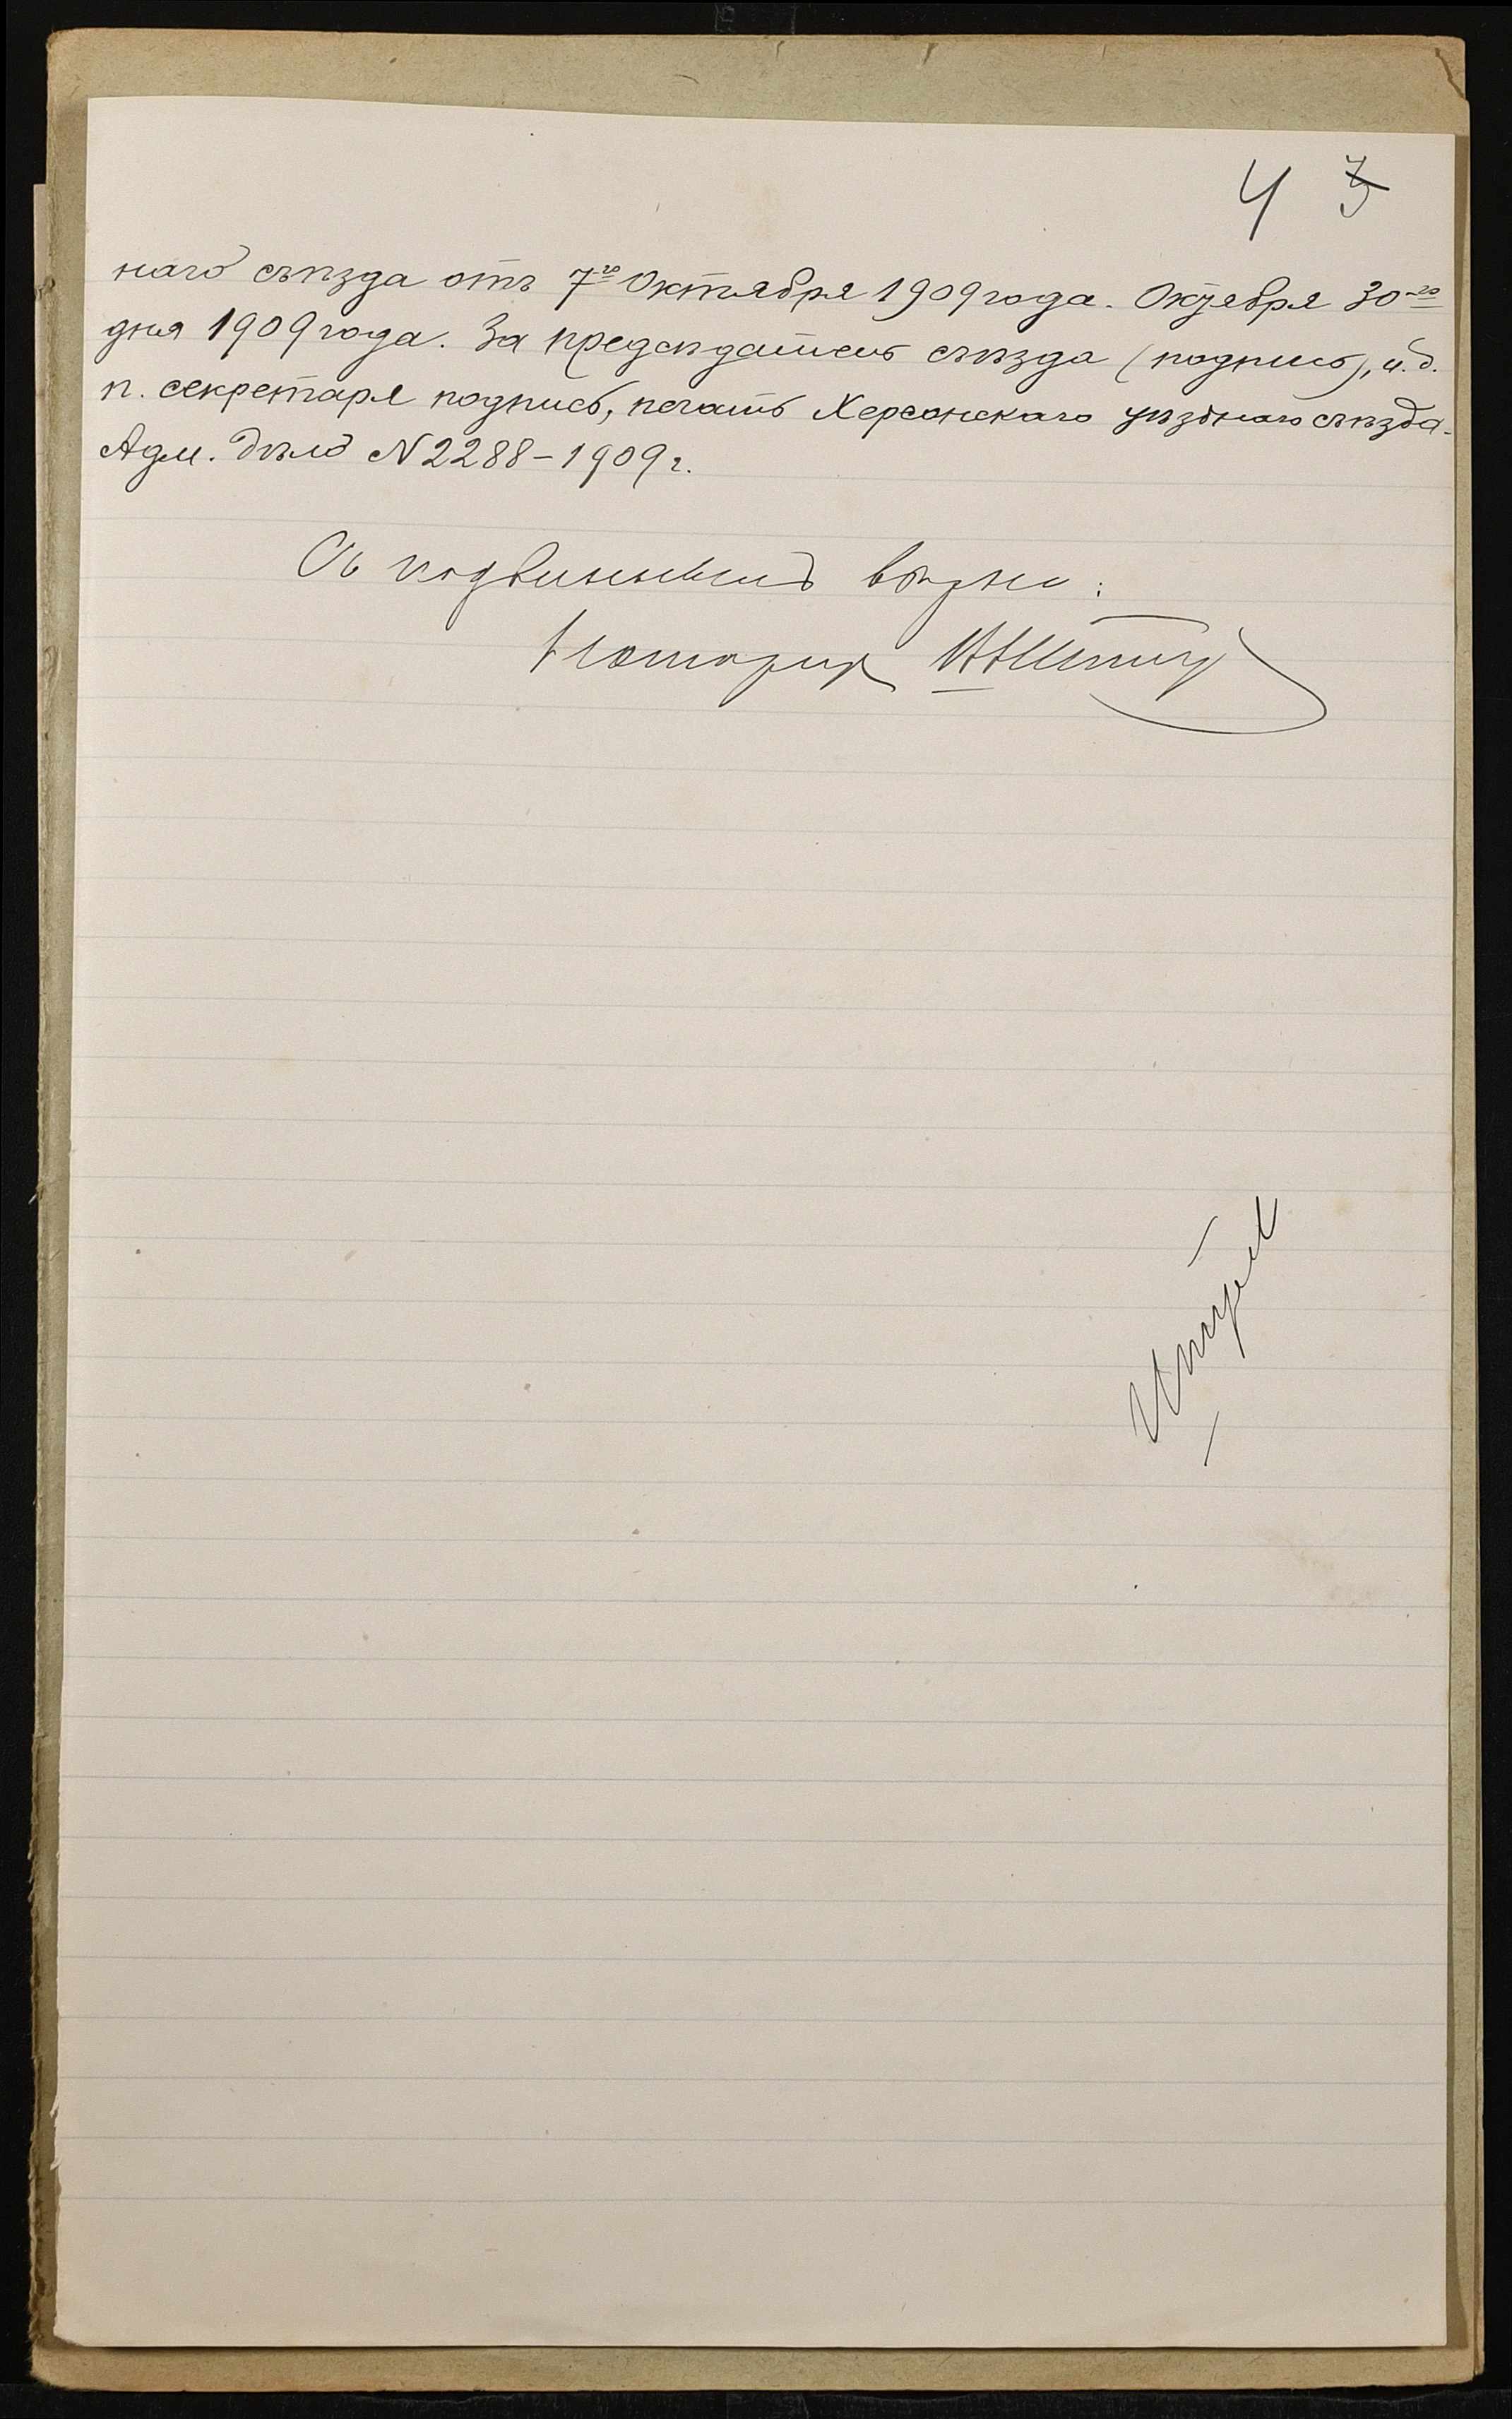 4
наго съѣзда отъ 7го Октября 1909 года. Октября 30-го
дня 1909 года. За предсѣдатель съѣзда (подпись), и. д.
п. секретаря подпись, печать Херсонскаго уѣзднаго съѣзда.
Адм. дѣло N 2288–1909 г.
Съ подлиннымъ вѣрно:
Нотаріусъ